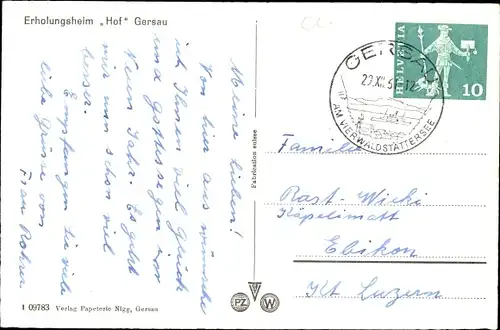 Erholungsheim „Hof“ Gersau
Meine lieben!
Von hier aus wünsche
ich Ihnen viel Glück
und Gottessegen im
Neuen Jahr. Es geht
mir nun schon viel
besser.
Empfangen Sie viele
liebe Grüsse von
Frau Rohrer
1 09783 Verlag Papeterie Nigg, Gersau
Fabrication suisse
PZ W
GERSAU
29.XII.6 -12
AM VIERWALDSTÄTTERSEE
HELVETIA
10
Familie
Rast-Wicki
Käpelimatt
Ebikon
Kt Luzern